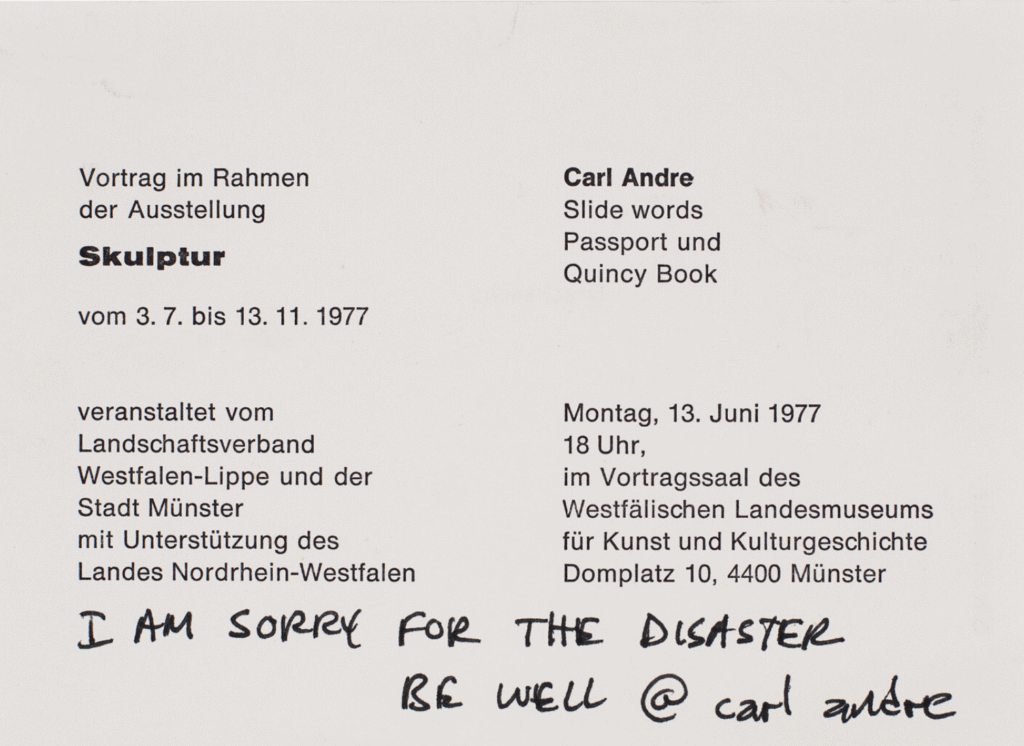 Vortrag im Rahmen
der Ausstellung
Skulptur
vom 3. 7. bis 13. 11. 1977
veranstaltet vom
Landschaftsverband
Westfalen-Lippe und der
Stadt Münster
mit Unterstützung des
Landes Nordrhein-Westfalen
Carl Andre
Slide words
Passport und
Quincy Book
Montag, 13. Juni 1977
18 Uhr,
im Vortragssaal des
Westfälischen Landesmuseums
für Kunst und Kulturgeschichte
Domplatz 10, 4400 Münster
I AM SORRY FOR THE DISASTER
BE WELL @ carl andre